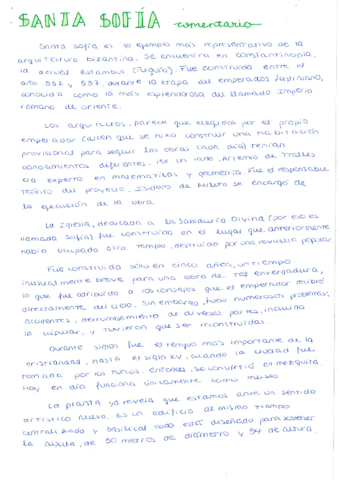 SANTA SOFÍA comentario
Santa Sofía es el ejemplo más representativo de la
arquitectura bizantina. Se encuentra en Constantinopla,
la actual Estambul (Turquía). Fue construida entre el
año 532 y 537, durante la etapa del emperador Justiniano,
conocida como la más esplendorosa del llamado Imperio
romano de oriente.
Los arquitectos, parece que elegidos por el propio
emperador (dicen que se hizo construir una habitación
provisional para seguir las obras cada día) tenían
conocimientos diferentes. Por un lado, Artemio de Tralles
era experto en matemáticas y geometría. Fue el responsable
teórico del proyecto, Isidoro de Mileto se encargó de
la ejecución de la obra.
La Iglesia, dedicada a la Sabiduría Divina (por eso es
llamada Sofía) fue construida en el lugar que anteriormente
había ocupado otro templo, destruido por una revuelta popular.
Fue construida sólo en cinco años, un tiempo
inusualmente breve para una obra de tal envergadura,
lo que fue atribuido a los consejos que el emperador recibió
directamente del cielo. Sin embargo, hubo numerosos problemas,
accidentes, derrumbamiento de diversas partes, incluida
la cúpula, y tuvieron que ser reconstruidas.
Durante siglos fue el templo más importante de la
cristiandad, hasta el siglo XV, cuando la ciudad fue
tomada por los turcos. Entonces, se convirtió en mezquita
Hoy en día funciona únicamente como museo
La planta ya revela que estamos ante un sentido
artístico nuevo. Es un edificio al mismo tiempo
centralizado y basilical. Todo está diseñado para sostener
la cúpula, de 30 metros de diámetro y 54 de altura.